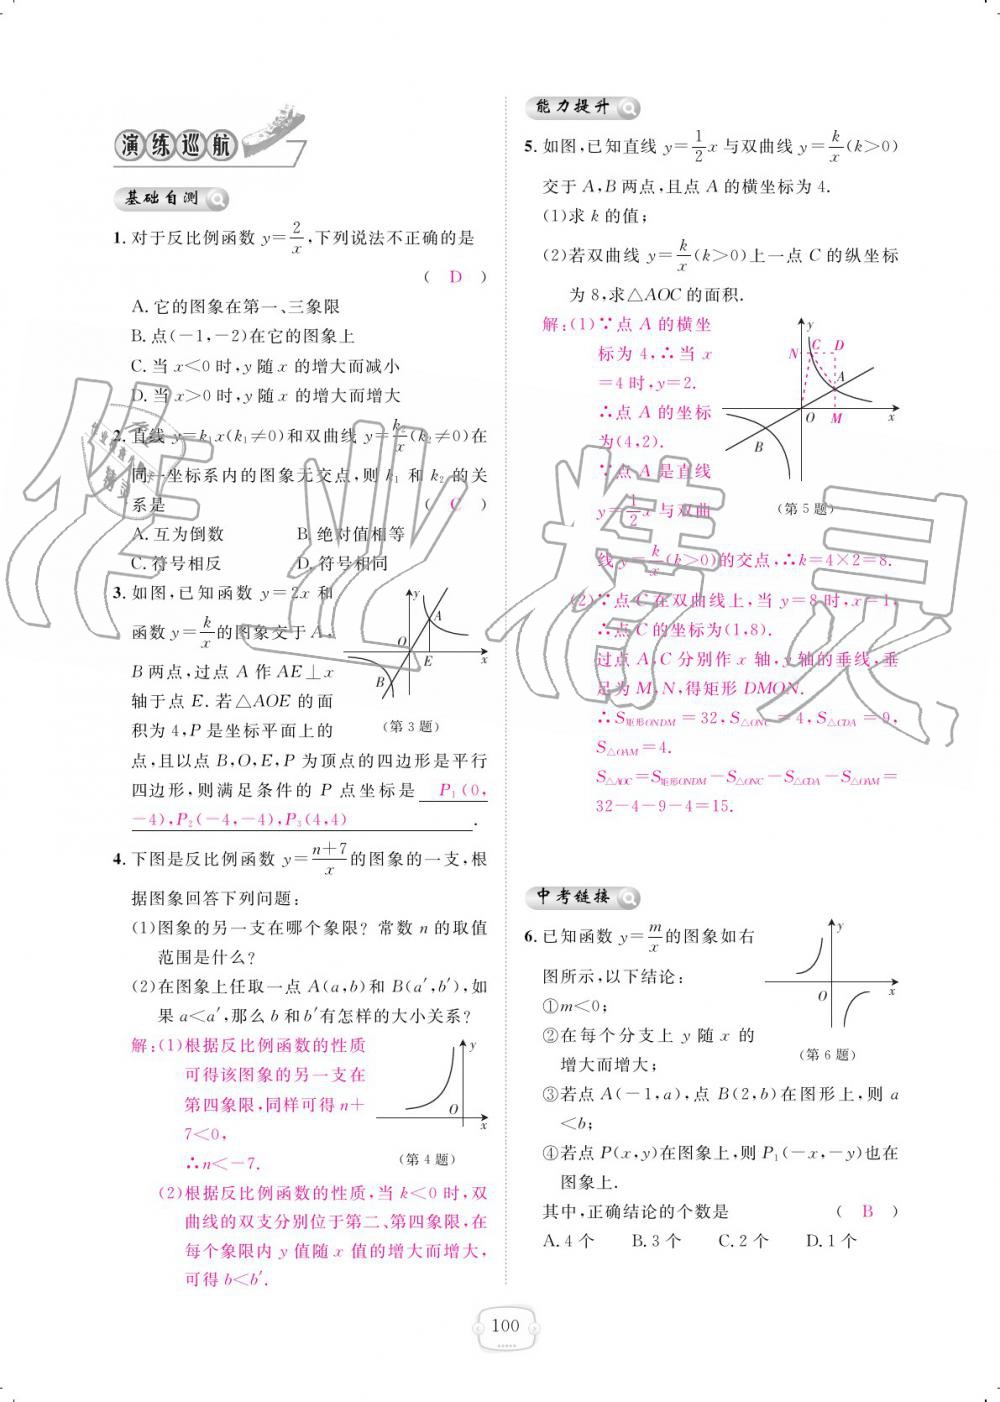 演练巡航
基础自测
1. 对于反比例函数 y=2/x,下列说法不正确的是
( D )
A. 它的图象在第一、三象限
B. 点(-1,-2)在它的图象上
C. 当 x<0 时,y 随 x 的增大而减小
D. 当 x>0 时,y 随 x 的增大而增大
2. 直线 y=k₁x(k₁≠0)和双曲线 y=k₂/x(k₂≠0)在
同一坐标系内的图象无交点,则 k₁ 和 k₂ 的关
系是 ( C )
A. 互为倒数 B. 绝对值相等
C. 符号相反 D. 符号相同
3. 如图,已知函数 y=2x 和
函数 y=k/x的图象交于 A、
B 两点,过点 A 作 AE⊥x
轴于点 E. 若△AOE 的面
积为 4,P 是坐标平面上的
点,且以点 B,O,E,P 为顶点的四边形是平行
四边形,则满足条件的 P 点坐标是 P₁(0,
-4),P₂(-4,-4),P₃(4,4) .
y
A
O
E
x
B
(第 3 题)
4. 下图是反比例函数 y=(n+7)/x的图象的一支,根
据图象回答下列问题:
(1)图象的另一支在哪个象限? 常数 n 的取值
范围是什么?
(2)在图象上任取一点 A(a,b)和 B(a′,b′),如
果 a<a′,那么 b 和 b′有怎样的大小关系?
解:(1)根据反比例函数的性质
可得该图象的另一支在
第四象限,同样可得 n+
7<0,
∴n<-7.
y
O
x
(第 4 题)
(2)根据反比例函数的性质,当 k<0 时,双
曲线的双支分别位于第二、第四象限,在
每个象限内 y 值随 x 值的增大而增大,
可得 b<b′.
能力提升
5. 如图,已知直线 y=1/2x 与双曲线 y=k/x(k>0)
交于 A,B 两点,且点 A 的横坐标为 4.
(1)求 k 的值;
(2)若双曲线 y=k/x(k>0)上一点 C 的纵坐标
为 8,求△AOC 的面积.
解:(1)∵点 A 的横坐
标为 4,∴当 x
=4 时,y=2.
∴点 A 的坐标
为(4,2).
∵点 A 是直线
y=1/2x 与双曲
线 y=k/x(k>0)的交点,∴k=4×2=8.
y
N C D
A
O M x
B
(第 5 题)
(2)∵点 C 在双曲线上,当 y=8 时,x=1,
∴点 C 的坐标为(1,8).
过点 A,C 分别作 x 轴,y 轴的垂线,垂
足为 M,N,得矩形 DMON.
∴S矩形ONDM=32,S△ONC=4,S△CDA=9,
S△OAM=4.
S△AOC=S矩形ONDM-S△ONC-S△CDA-S△OAM=
32-4-9-4=15.
中考链接
6. 已知函数 y=m/x的图象如右
图所示,以下结论:
①m<0;
②在每个分支上 y 随 x 的
增大而增大;
③若点 A(-1,a),点 B(2,b)在图形上,则 a
<b;
④若点 P(x,y)在图象上,则 P₁(-x,-y)也在
图象上.
其中,正确结论的个数是 ( B )
A. 4 个 B. 3 个 C. 2 个 D. 1 个
y
O
x
(第 6 题)
100
作业精灵